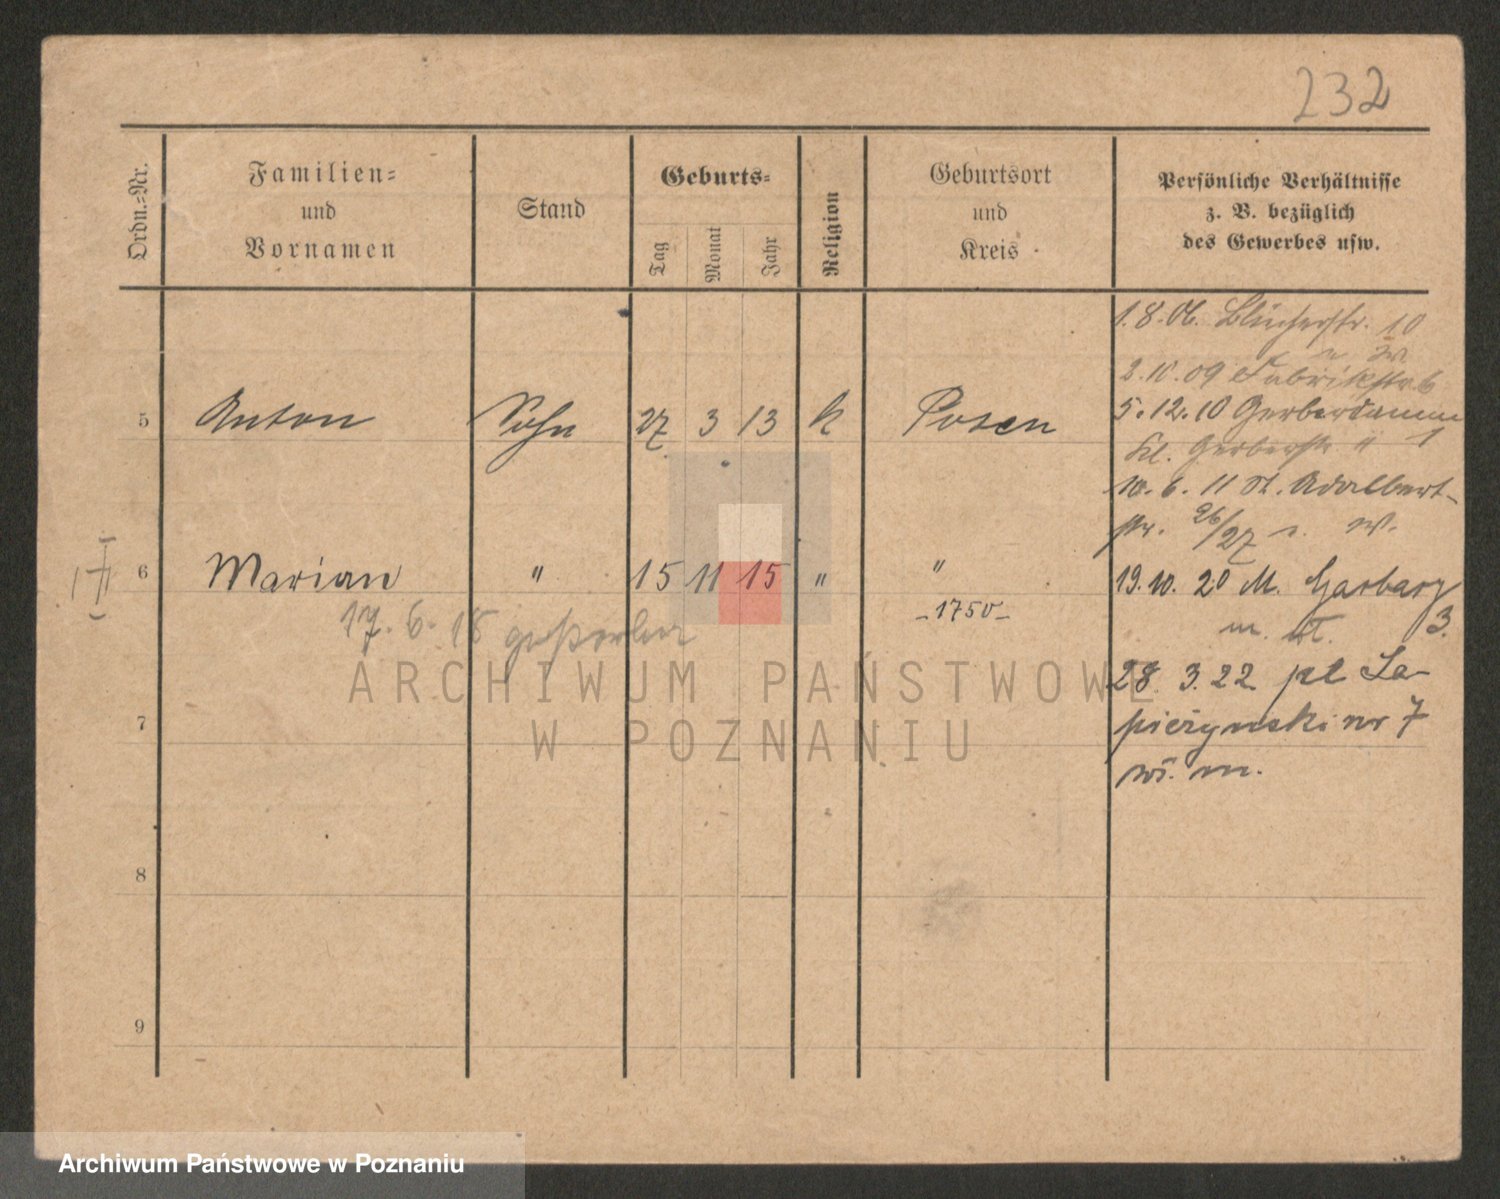 232
Ordn.-Nr.
Familien-
und
Vornamen
Stand
Geburts-
Tag
Monat
Jahr
Religion
Geburtsort
und
Kreis
Persönliche Verhältnisse
z. B. bezüglich
des Gewerbes usw.
1.8.06. Blücherstr. 10
2.10.09 Fabrikstr. 6
5.12.10 Gerberdamm 1
5 Anton Sohn 27 3 13 k Posen
Kl. Gerberstr. 11
10.6.11 St. Adalbert-
str. 26/27
6 Marian " 15 11 15 " "
19.10.20 M. Garbary 3.
-1750-
17.6.18
28.3.22 pl Sa-
pieżyński nr 7
7
8
9
ARCHIWUM PAŃSTWOWE
W POZNANIU
Archiwum Państwowe w Poznaniu